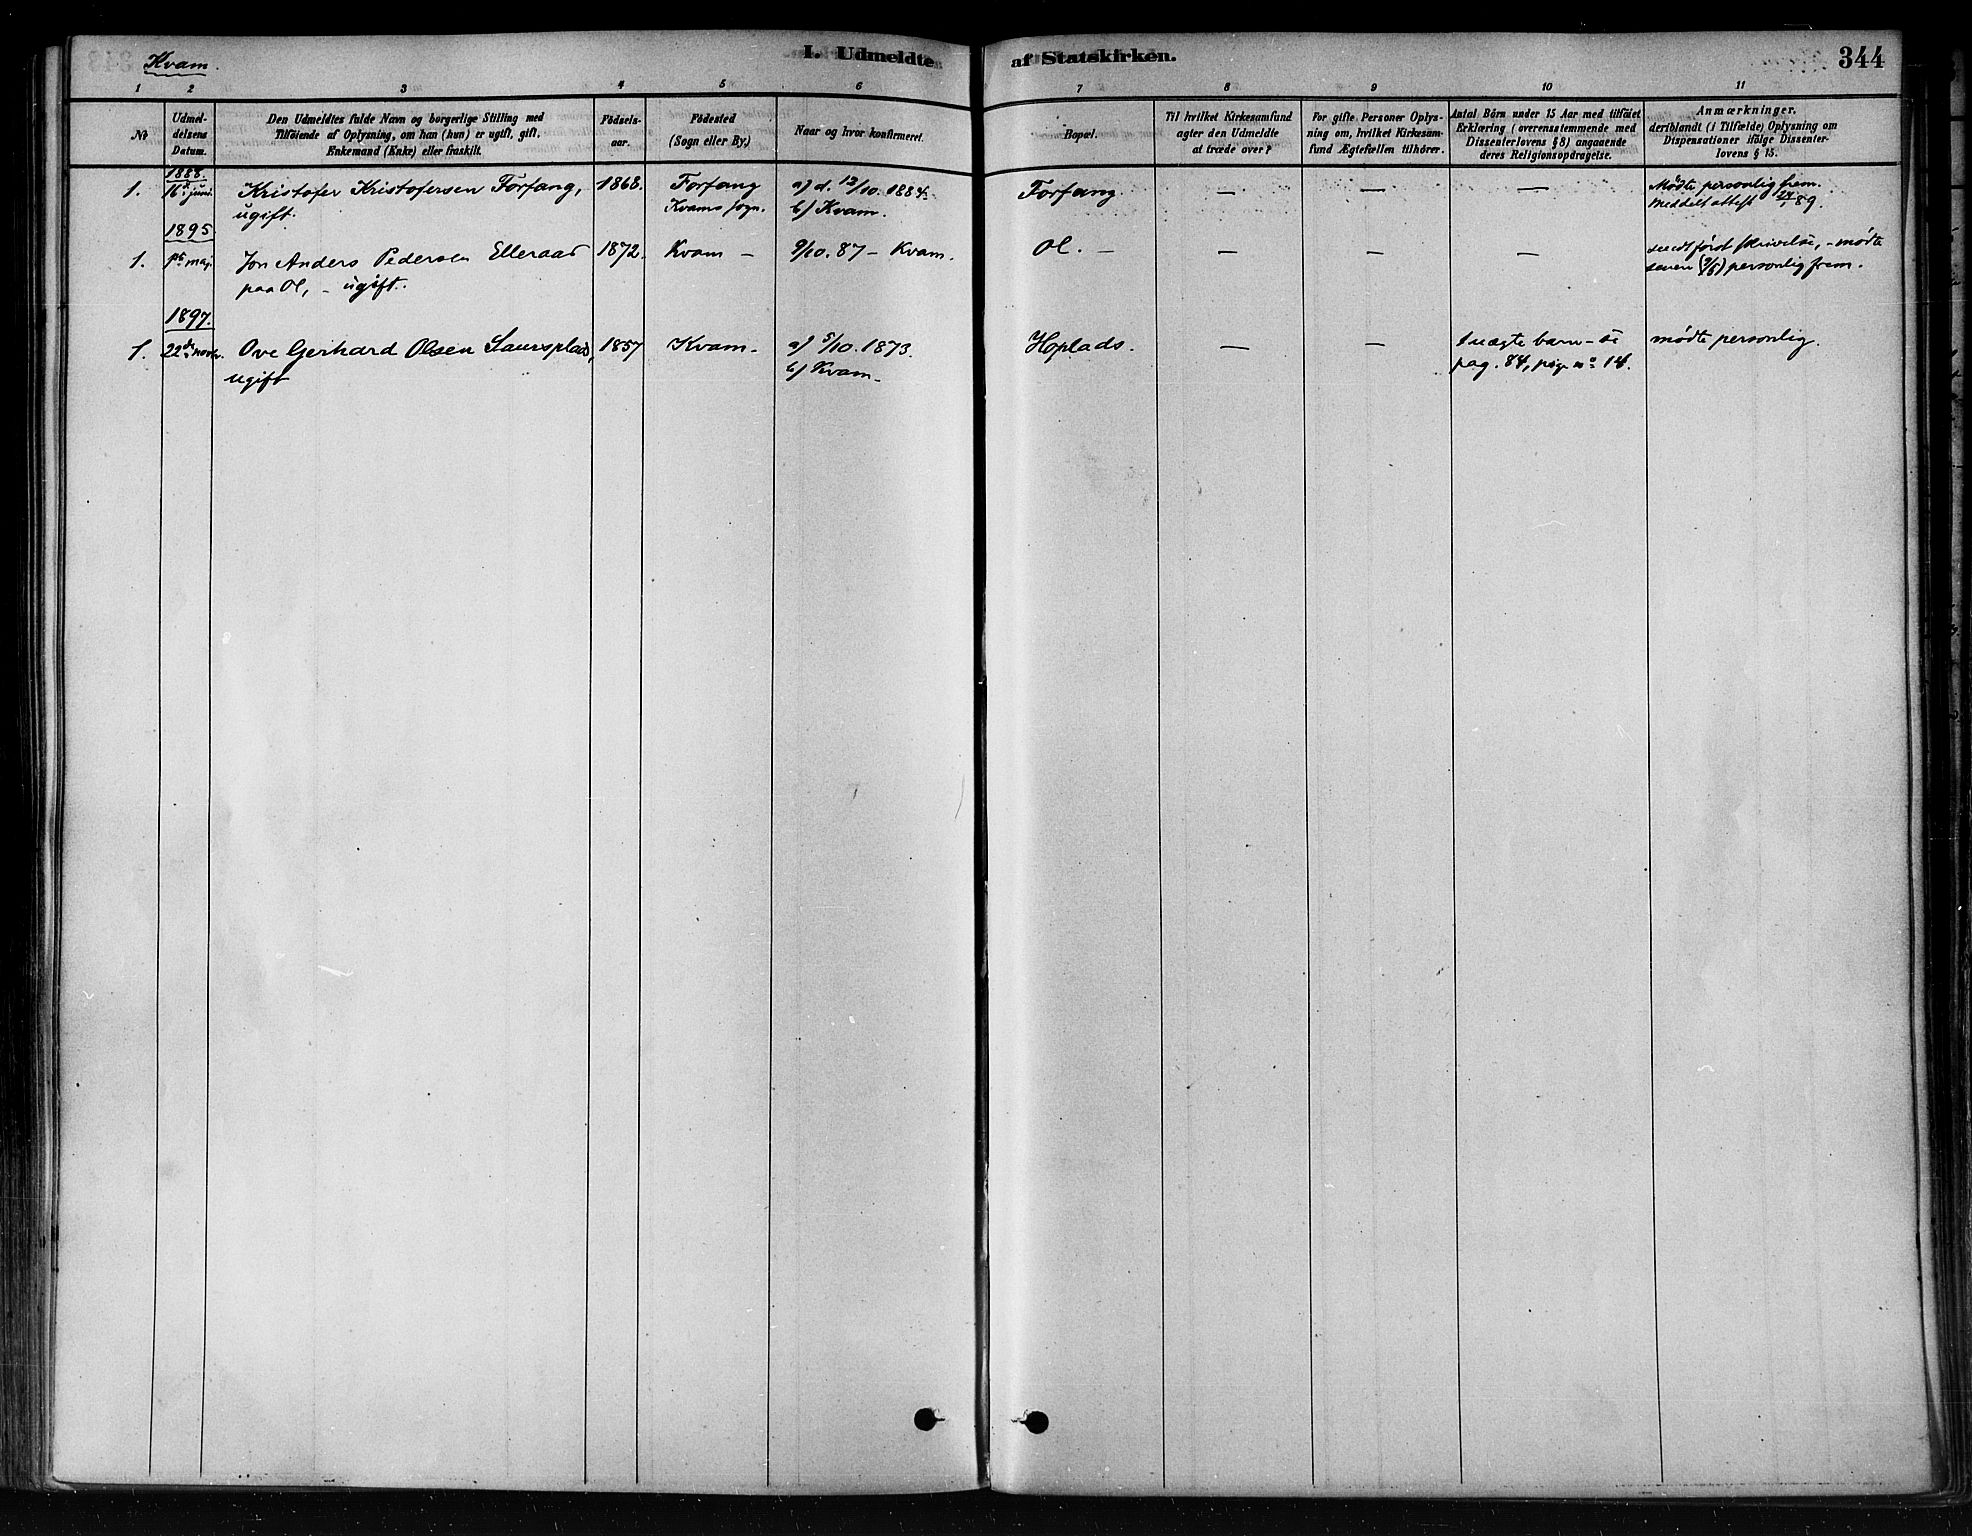 Kvam.
I. Udmeldte af Statskirken.
344
1 2 3 4 5 6 7 8 9 10 11
No
Udmel-
delsens
Datum.
Den Udmeldtes fulde Navn og borgerlige Stilling med
Tilföiende af Oplysning, om han (hun) er ugift, gift,
Enkemand (Enke) eller fraskilt.
Födsels-
aar.
Födested
(Sogn eller By.)
Naar og hvor konfirmeret.
Bopæl.
Til hvilket Kirkesamfund
agter den Udmeldte
at træde over?
For gifte Personer Oplys-
ning om, hvilket Kirkesam-
fund Ægtefællen tilhörer.
Antal Börn under 15 Aar med tilföiet
Erklæring (overensstemmende med
Dissenterlovens § 8) angaaende
deres Religionsopdragelse.
Anmærkninger,
deriblandt (i Tilfælde) Oplysning om
Dispensationer ifölge Dissenter-
lovens § 15.
1888.
1. 16de juni. Kristofer Kristofersen Forfang, 1868. Forfang a) d. 12/10. 1884. Forfang. — — — Mödte personlig frem.
ugift. Kvams sogn. b) Kvam. Meddelt attest 89.
1895
1. maj. Jon Anders Pedersen Elleraad 1872. Kvam — 9/10. 87 — Kvam. Ol. — — — — sendt först skrivelse, — mödte
paa Ol, — ugift. senere personlig frem.
1897.
1. 22de novbr. Ove Gerhard Olsen Saursplads, 1857 Kvam — a) 5/10. 1873. Hoplads. — — 1 uægte barn — se mödte personlig.
ugift b) Kvam — pag. 84, pige no 14.